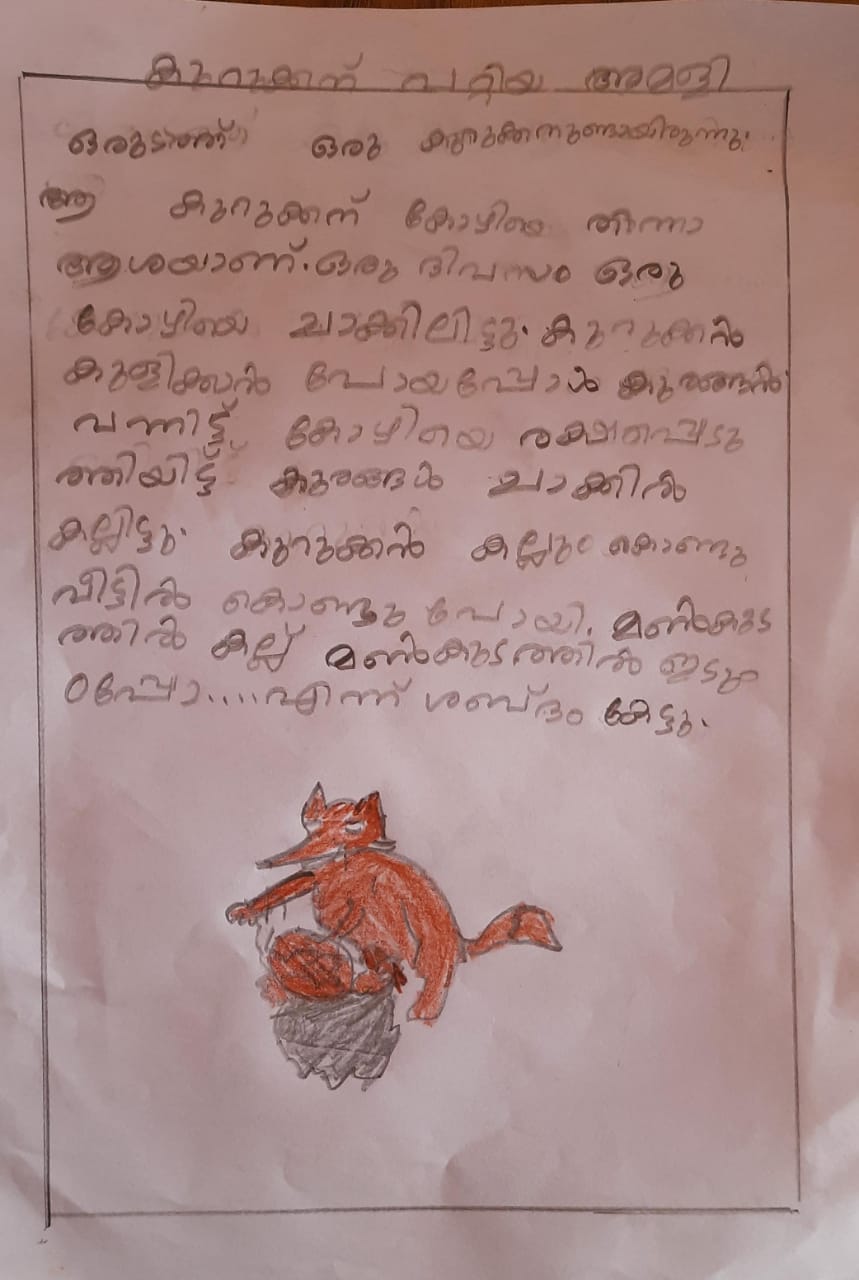 കുറുക്കന് പറ്റിയ അമളി
ഒരുടത്ത് ഒരു കുറുക്കനുണ്ടായിരുന്നു.
ആ കുറുക്കന് കോഴിയെ തിന്നാ
ആശയാണ്. ഒരു ദിവസം ഒരു
കോഴിയെ ചാക്കിലിട്ടു. കുറുക്കൻ
കുളിക്കാൻ പോയപ്പോൾ കുരങ്ങൻ
വന്നിട്ട് കോഴിയെ രക്ഷപ്പെടു
ത്തിയിട്ട് കുരങ്ങൾ ചാക്കിൽ
കല്ലിട്ടു. കുറുക്കൻ കല്ലും കൊണ്ടു
വീട്ടിൽ കൊണ്ടു പോയി. മൺകുട
ത്തിൽ കല്ല് മൺകുടത്തിൽ ഇടും
ഠപ്പോ....എന്ന് ശബ്ദം കേട്ടു.